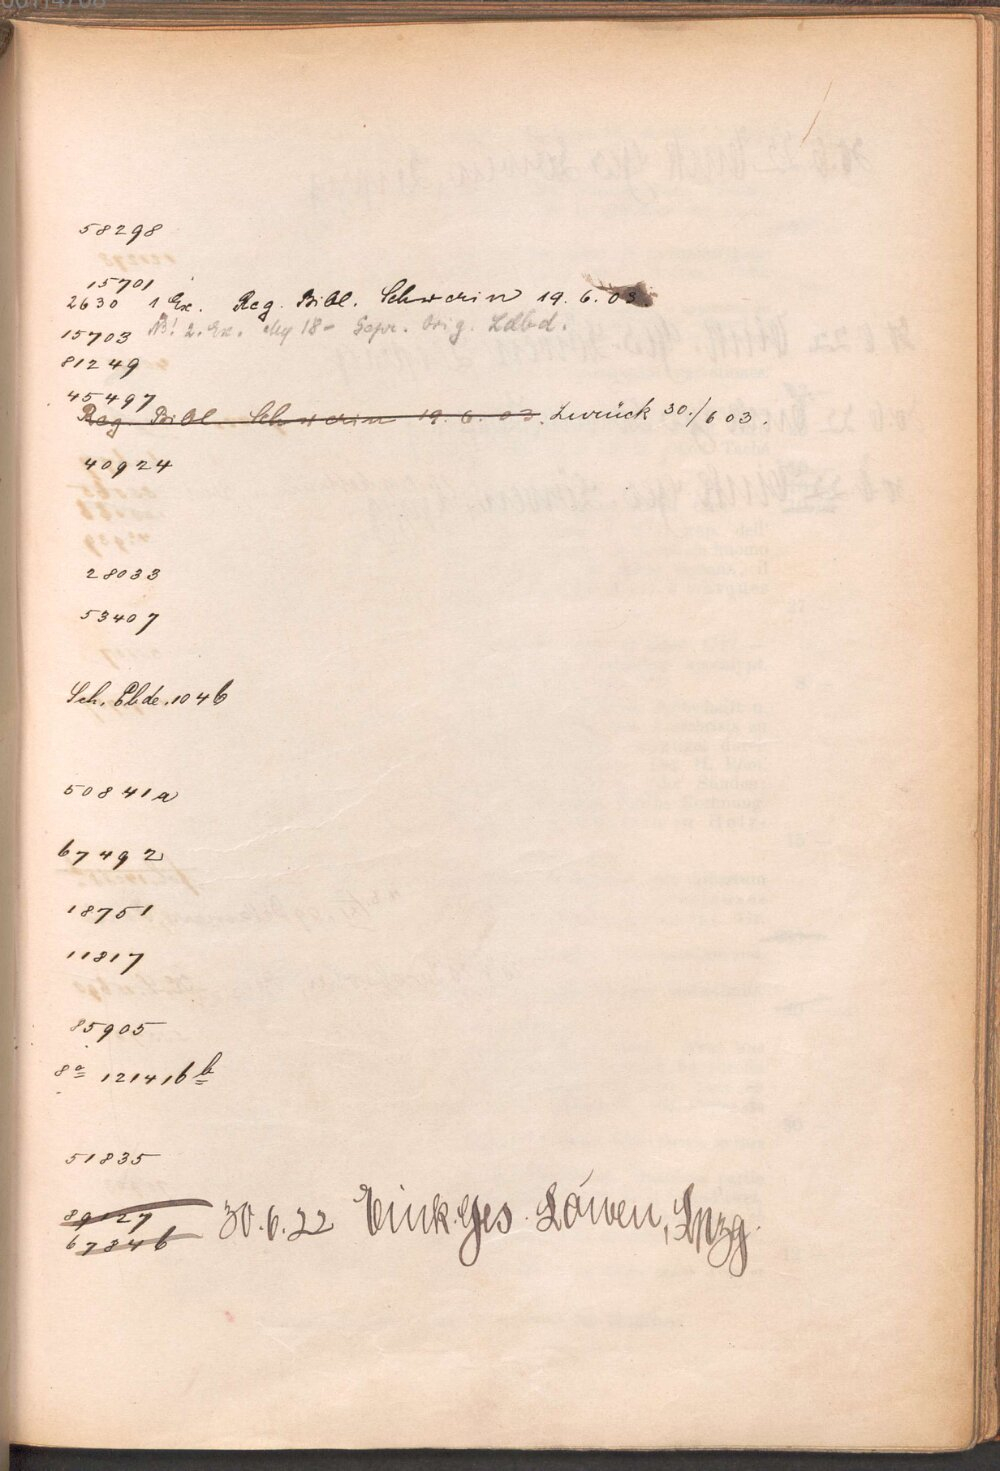 58298
15701
2630 1 Ex. Reg. Bibl. Schwerin 19. 6. 03.
15703 NB! 2. Ex. 18- Gepr. Orig. Ldbd.
81249
45497
Reg. Bibl. Schwerin 19. 6. 03. Zurück 30./6 03.
40924
28033
53407
Sch. 1046
50841a
67492
18751
11817
85905
8º 121416b
51835
89127 30.6.22 Eink.Ges. Löwen, Lpzg.
67846